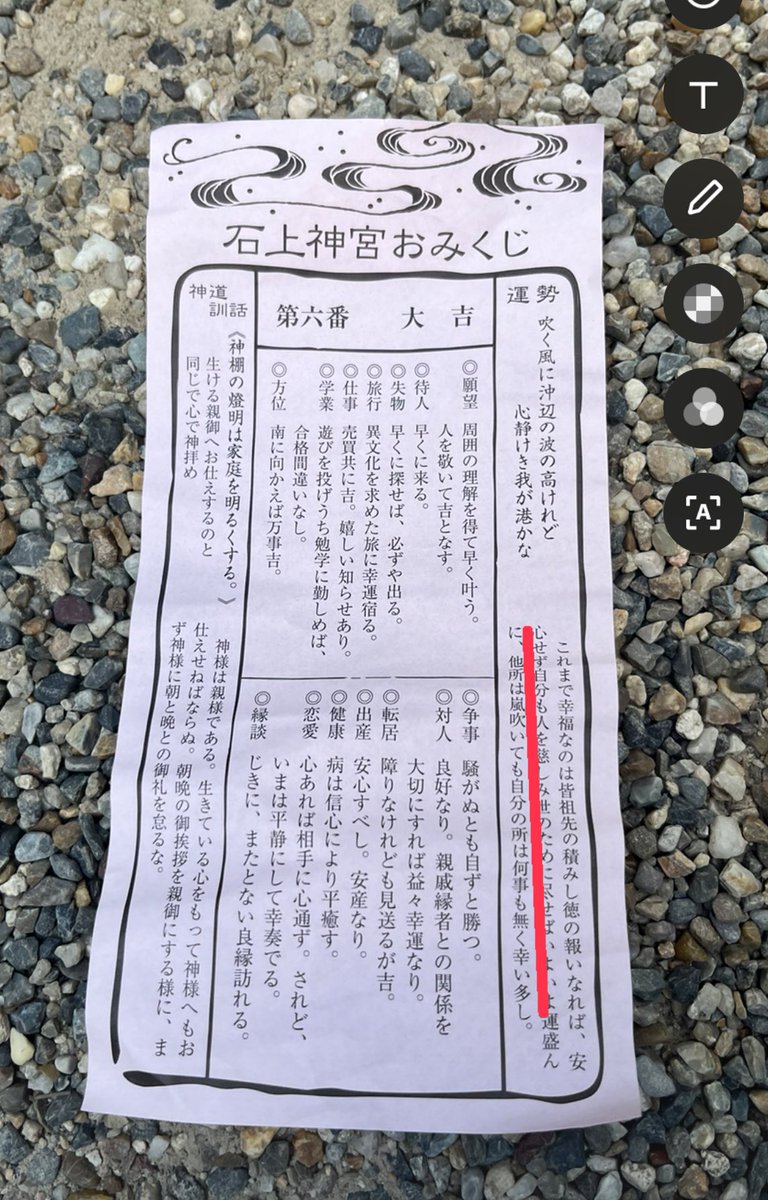 石上神宮おみくじ
運勢
吹く風に沖辺の波の高けれど
心静けき我が港かな
これまで幸福なのは皆祖先の積みし徳の報いなれば、安
心せず自分も人を慈しみ世のために尽せばいよいよ運盛ん
に、他所は嵐吹いても自分の所は何事も無く幸い多し。
第六番 大吉
◎願望 周囲の理解を得て早く叶う。
人を敬いて吉となす。
◎待人 早くに来る。
◎失物 早くに探せば、必ずや出る。
◎旅行 異文化を求めた旅に幸運宿る。
◎仕事 売買共に吉。嬉しい知らせあり。
◎学業 遊びを投げうち勉学に勤しめば、
合格間違いなし。
◎方位 南に向かえば万事吉。
◎争事 騒がぬとも自ずと勝つ。
◎対人 良好なり。親戚縁者との関係を
大切にすれば益々幸運なり。
◎転居 障りなけれども見送るが吉。
◎出産 安心すべし。安産なり。
◎健康 病は信心により平癒す。
◎恋愛 心あれば相手に心通ず。されど、
いまは平静にして幸奏でる。
◎縁談 じきに、またとない良縁訪れる。
神道訓話
《神棚の燈明は家庭を明るくする。》
生ける親御へお仕えするのと
同じで心で神拝め
神様は親様である。生きている心をもって神様へもお
仕えせねばならぬ。朝晩の御挨拶を親御にする様に、ま
ず神様に朝と晩との御礼を怠るな。
T
A